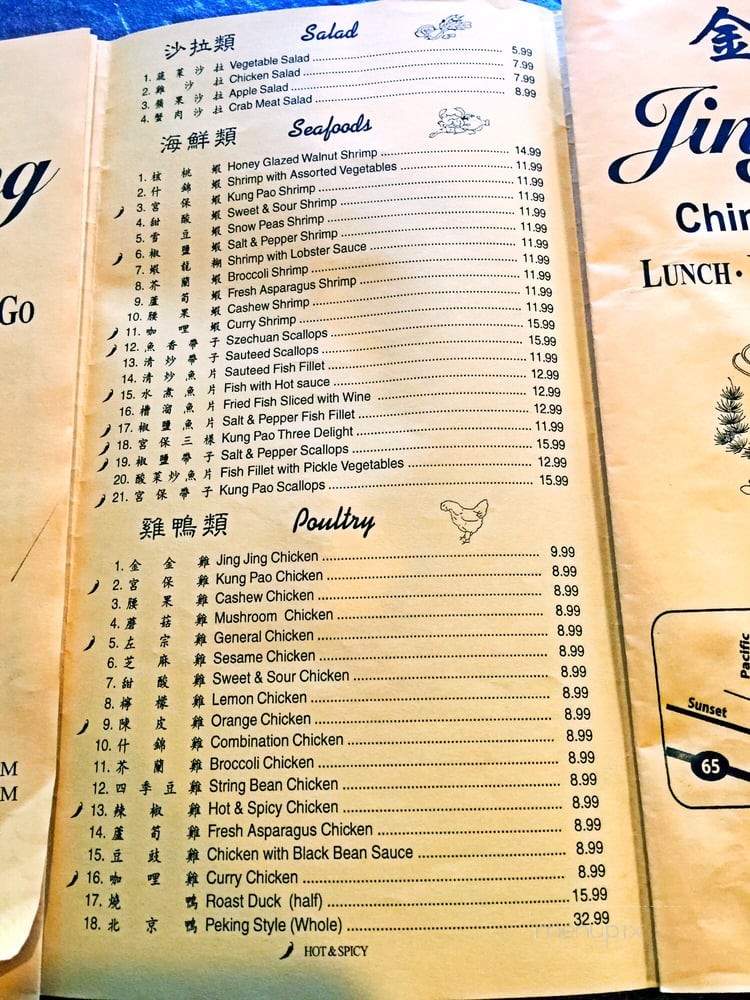 ng
Go
M
M
沙拉類 Salad
1. 蔬菜沙拉 Vegetable Salad 5.99
2. 雞沙拉 Chicken Salad 7.99
3. 蘋果沙拉 Apple Salad 7.99
4. 蟹肉沙拉 Crab Meat Salad 8.99
海鮮類 Seafoods
1. 核桃蝦 Honey Glazed Walnut Shrimp 14.99
2. 什錦蝦 Shrimp with Assorted Vegetables 11.99
3. 宮保蝦 Kung Pao Shrimp 11.99
4. 甜酸蝦 Sweet & Sour Shrimp 11.99
5. 雪豆蝦 Snow Peas Shrimp 11.99
6. 椒鹽蝦 Salt & Pepper Shrimp 11.99
7. 蝦龍糊 Shrimp with Lobster Sauce 11.99
8. 芥蘭蝦 Broccoli Shrimp 11.99
9. 蘆筍蝦 Fresh Asparagus Shrimp 11.99
10. 腰果蝦 Cashew Shrimp 11.99
11. 咖哩蝦 Curry Shrimp 11.99
12. 魚香帶子 Szechuan Scallops 15.99
13. 清炒帶子 Sauteed Scallops 15.99
14. 清炒魚片 Sauteed Fish Fillet 11.99
15. 水煮魚片 Fish with Hot sauce 12.99
16. 糟溜魚片 Fried Fish Sliced with Wine 12.99
17. 椒鹽魚片 Salt & Pepper Fish Fillet 12.99
18. 宮保三樣 Kung Pao Three Delight 11.99
19. 椒鹽帶子 Salt & Pepper Scallops 15.99
20. 酸菜炒魚片 Fish Fillet with Pickle Vegetables 12.99
21. 宮保帶子 Kung Pao Scallops 15.99
雞鴨類 Poultry
1. 金金雞 Jing Jing Chicken 9.99
2. 宮保雞 Kung Pao Chicken 8.99
3. 腰果雞 Cashew Chicken 8.99
4. 蘑菇雞 Mushroom Chicken 8.99
5. 左宗雞 General Chicken 8.99
6. 芝麻雞 Sesame Chicken 8.99
7. 甜酸雞 Sweet & Sour Chicken 8.99
8. 檸檬雞 Lemon Chicken 8.99
9. 陳皮雞 Orange Chicken 8.99
10. 什錦雞 Combination Chicken 8.99
11. 芥蘭雞 Broccoli Chicken 8.99
12. 四季豆雞 String Bean Chicken 8.99
13. 辣椒雞 Hot & Spicy Chicken 8.99
14. 蘆筍雞 Fresh Asparagus Chicken 8.99
15. 豆豉雞 Chicken with Black Bean Sauce 8.99
16. 咖哩雞 Curry Chicken 8.99
17. 燒鴨 Roast Duck (half) 15.99
18. 北京鴨 Peking Style (Whole) 32.99
HOT & SPICY
金
Jing
Chin
LUNCH ·
Pacific
Sunset
65
menupix